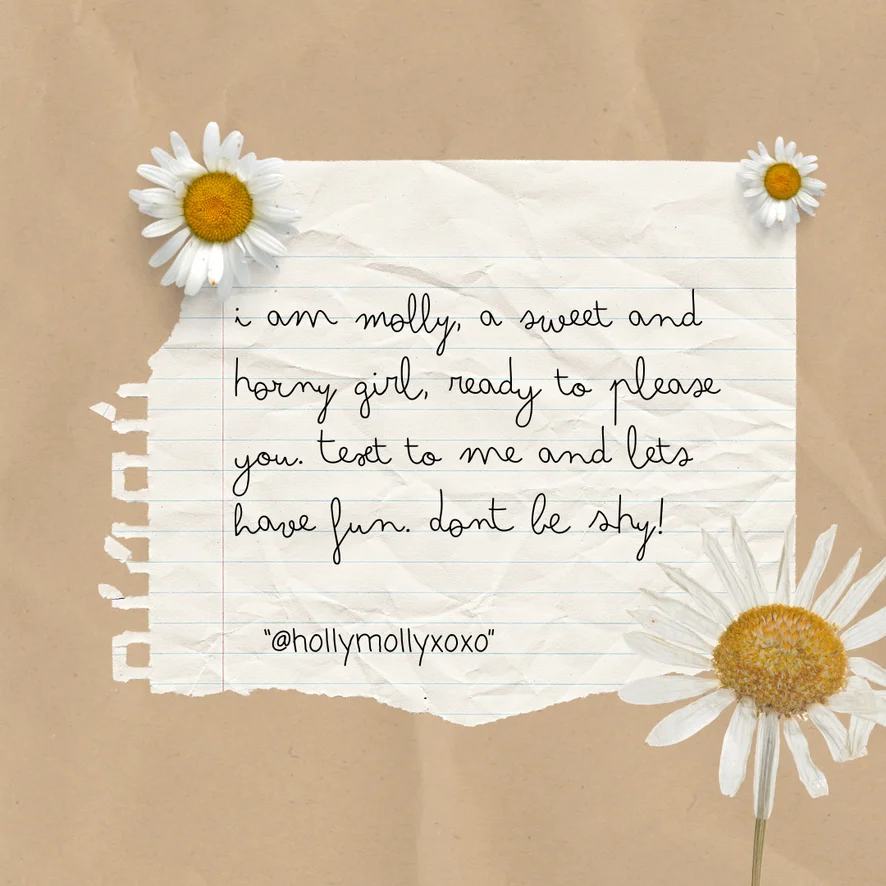 i am molly, a sweet and
horny girl, ready to please
you. text to me and lets
have fun. dont be shy!
"@hollymollyxoxo"